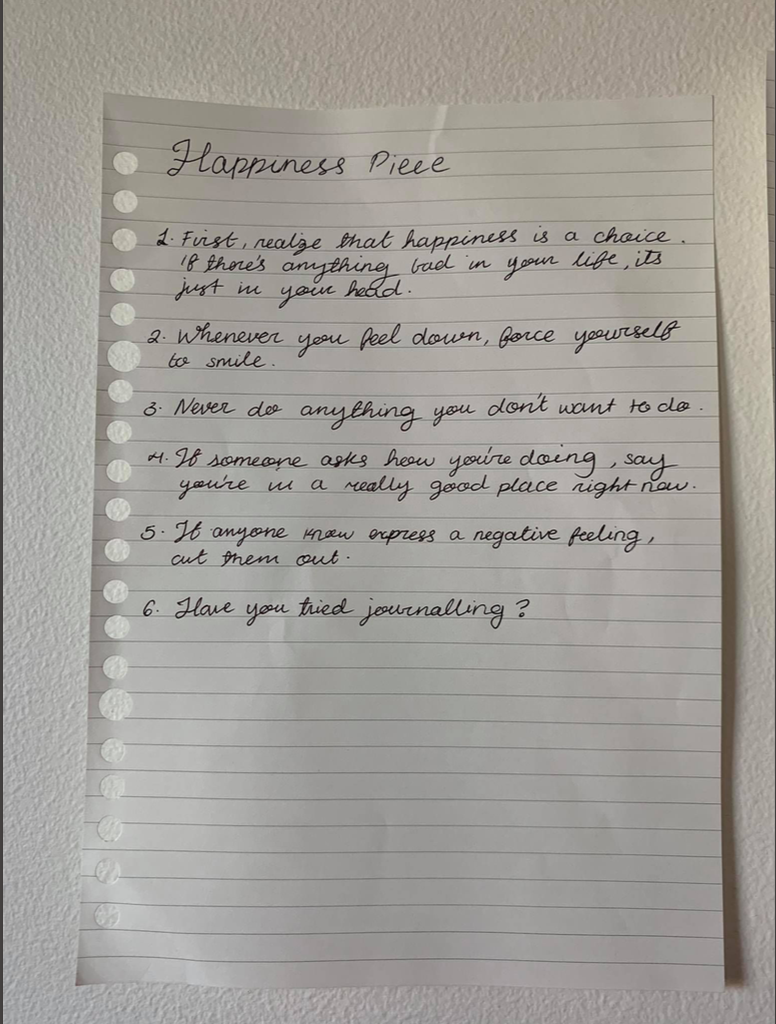 Happiness Piece
1. First, realize that happiness is a choice.
If there's anything bad in your life, its
just in your head.
2. Whenever you feel down, force yourself
to smile.
3. Never do anything you don't want to do.
4. If someone asks how you're doing, say
you're in a really good place right now.
5. If anyone know express a negative feeling,
cut them out.
6. Have you tried journalling?